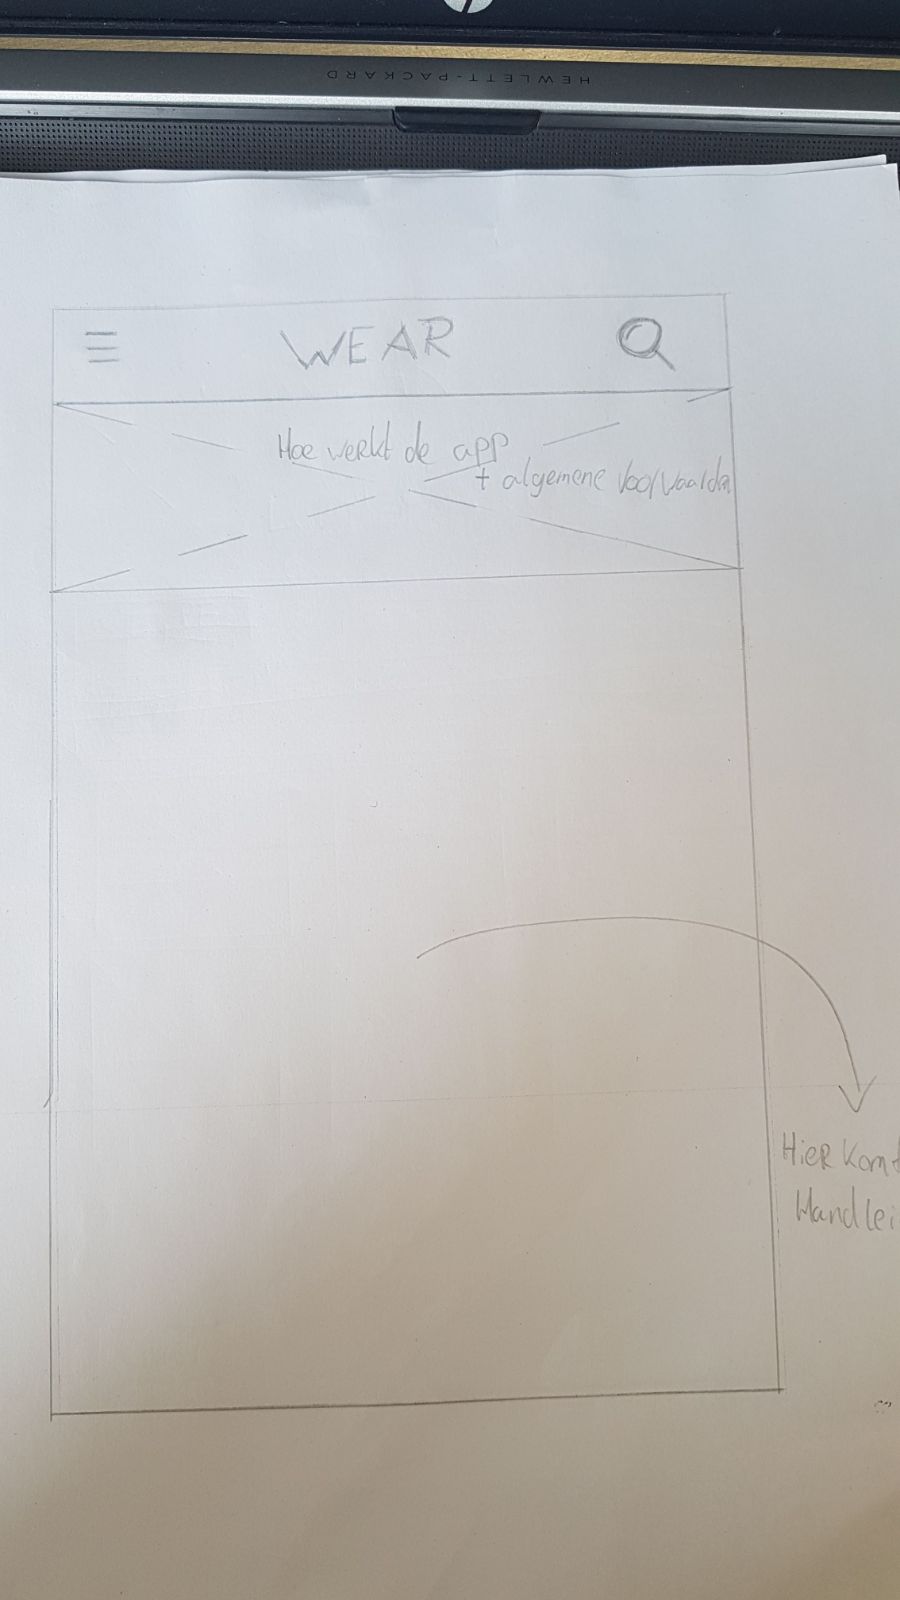 HEWLETT-PACKARD
WEAR
Hoe werkt de app
+ algemene Voorwaarden
Hier Komt
Handlei